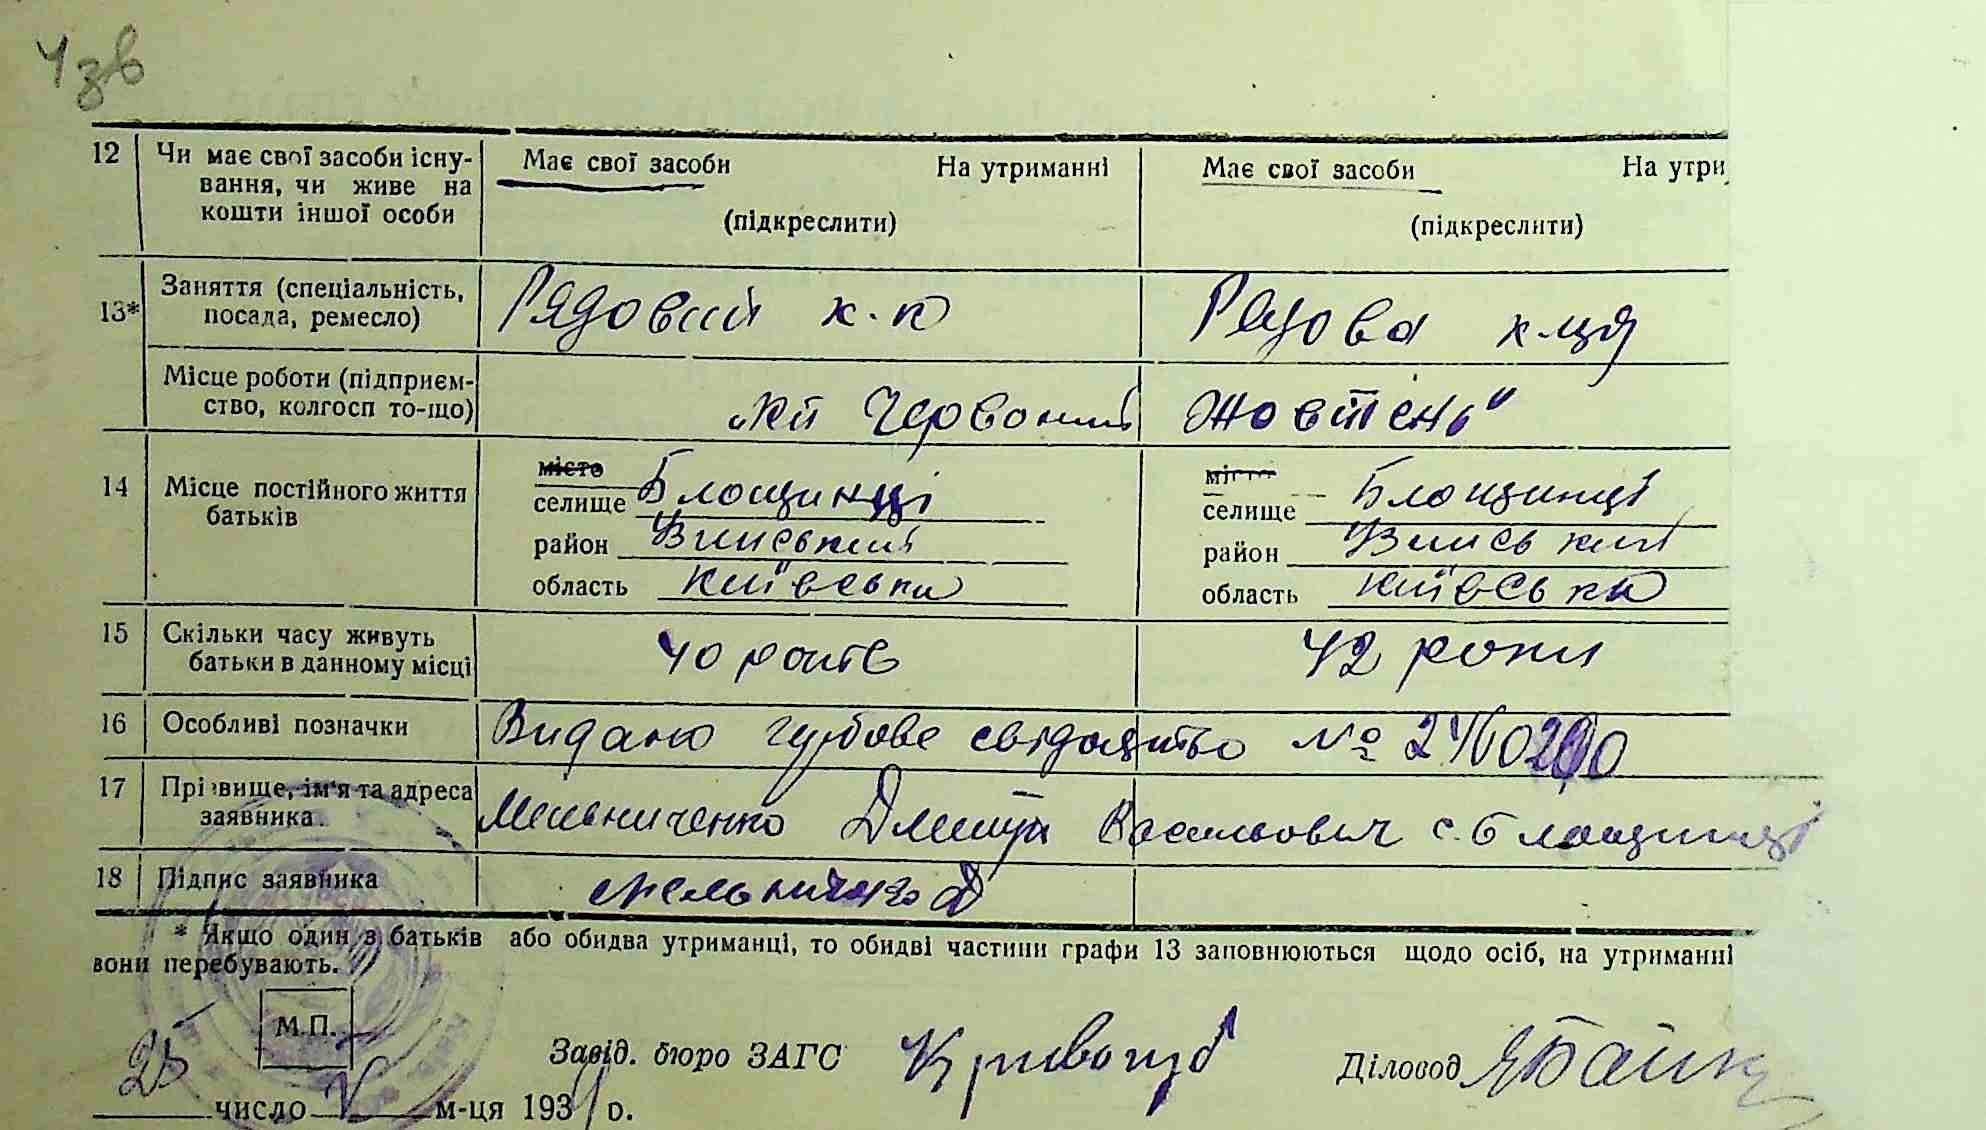 12 Чи має свої засоби існу- Має свої засоби На утриманні Має свої засоби На утри
вання, чи живе на
кошти іншої особи (підкреслити) (підкреслити)
13* Заняття (спеціальність, Рядовий к-к Рядова к-ця
посада, ремесло)
Місце роботи (підприєм- Червоний Жовтень"
ство, колгосп то-що)
14 Місце постійного життя місто місто
батьків селище Блощинці селище Блощинці
район район
область Київська область Київська
15 Скільки часу живуть 40 років 42 роки
батьки в данному місці
16 Особливі позначки Видано свідоцтво №
17 Прізвище, ім'я та адреса Мельниченко Дмитро Васильович с. Блощинці
заявника.
18 Підпис заявника Мельниченко Д
* Якщо один з батьків або обидва утриманці, то обидві частини графи 13 заповнюються щодо осіб, на утриманні
вони перебувають.
М.П.
Завід. бюро ЗАГС Діловод
25 число V м-ця 1939 р.